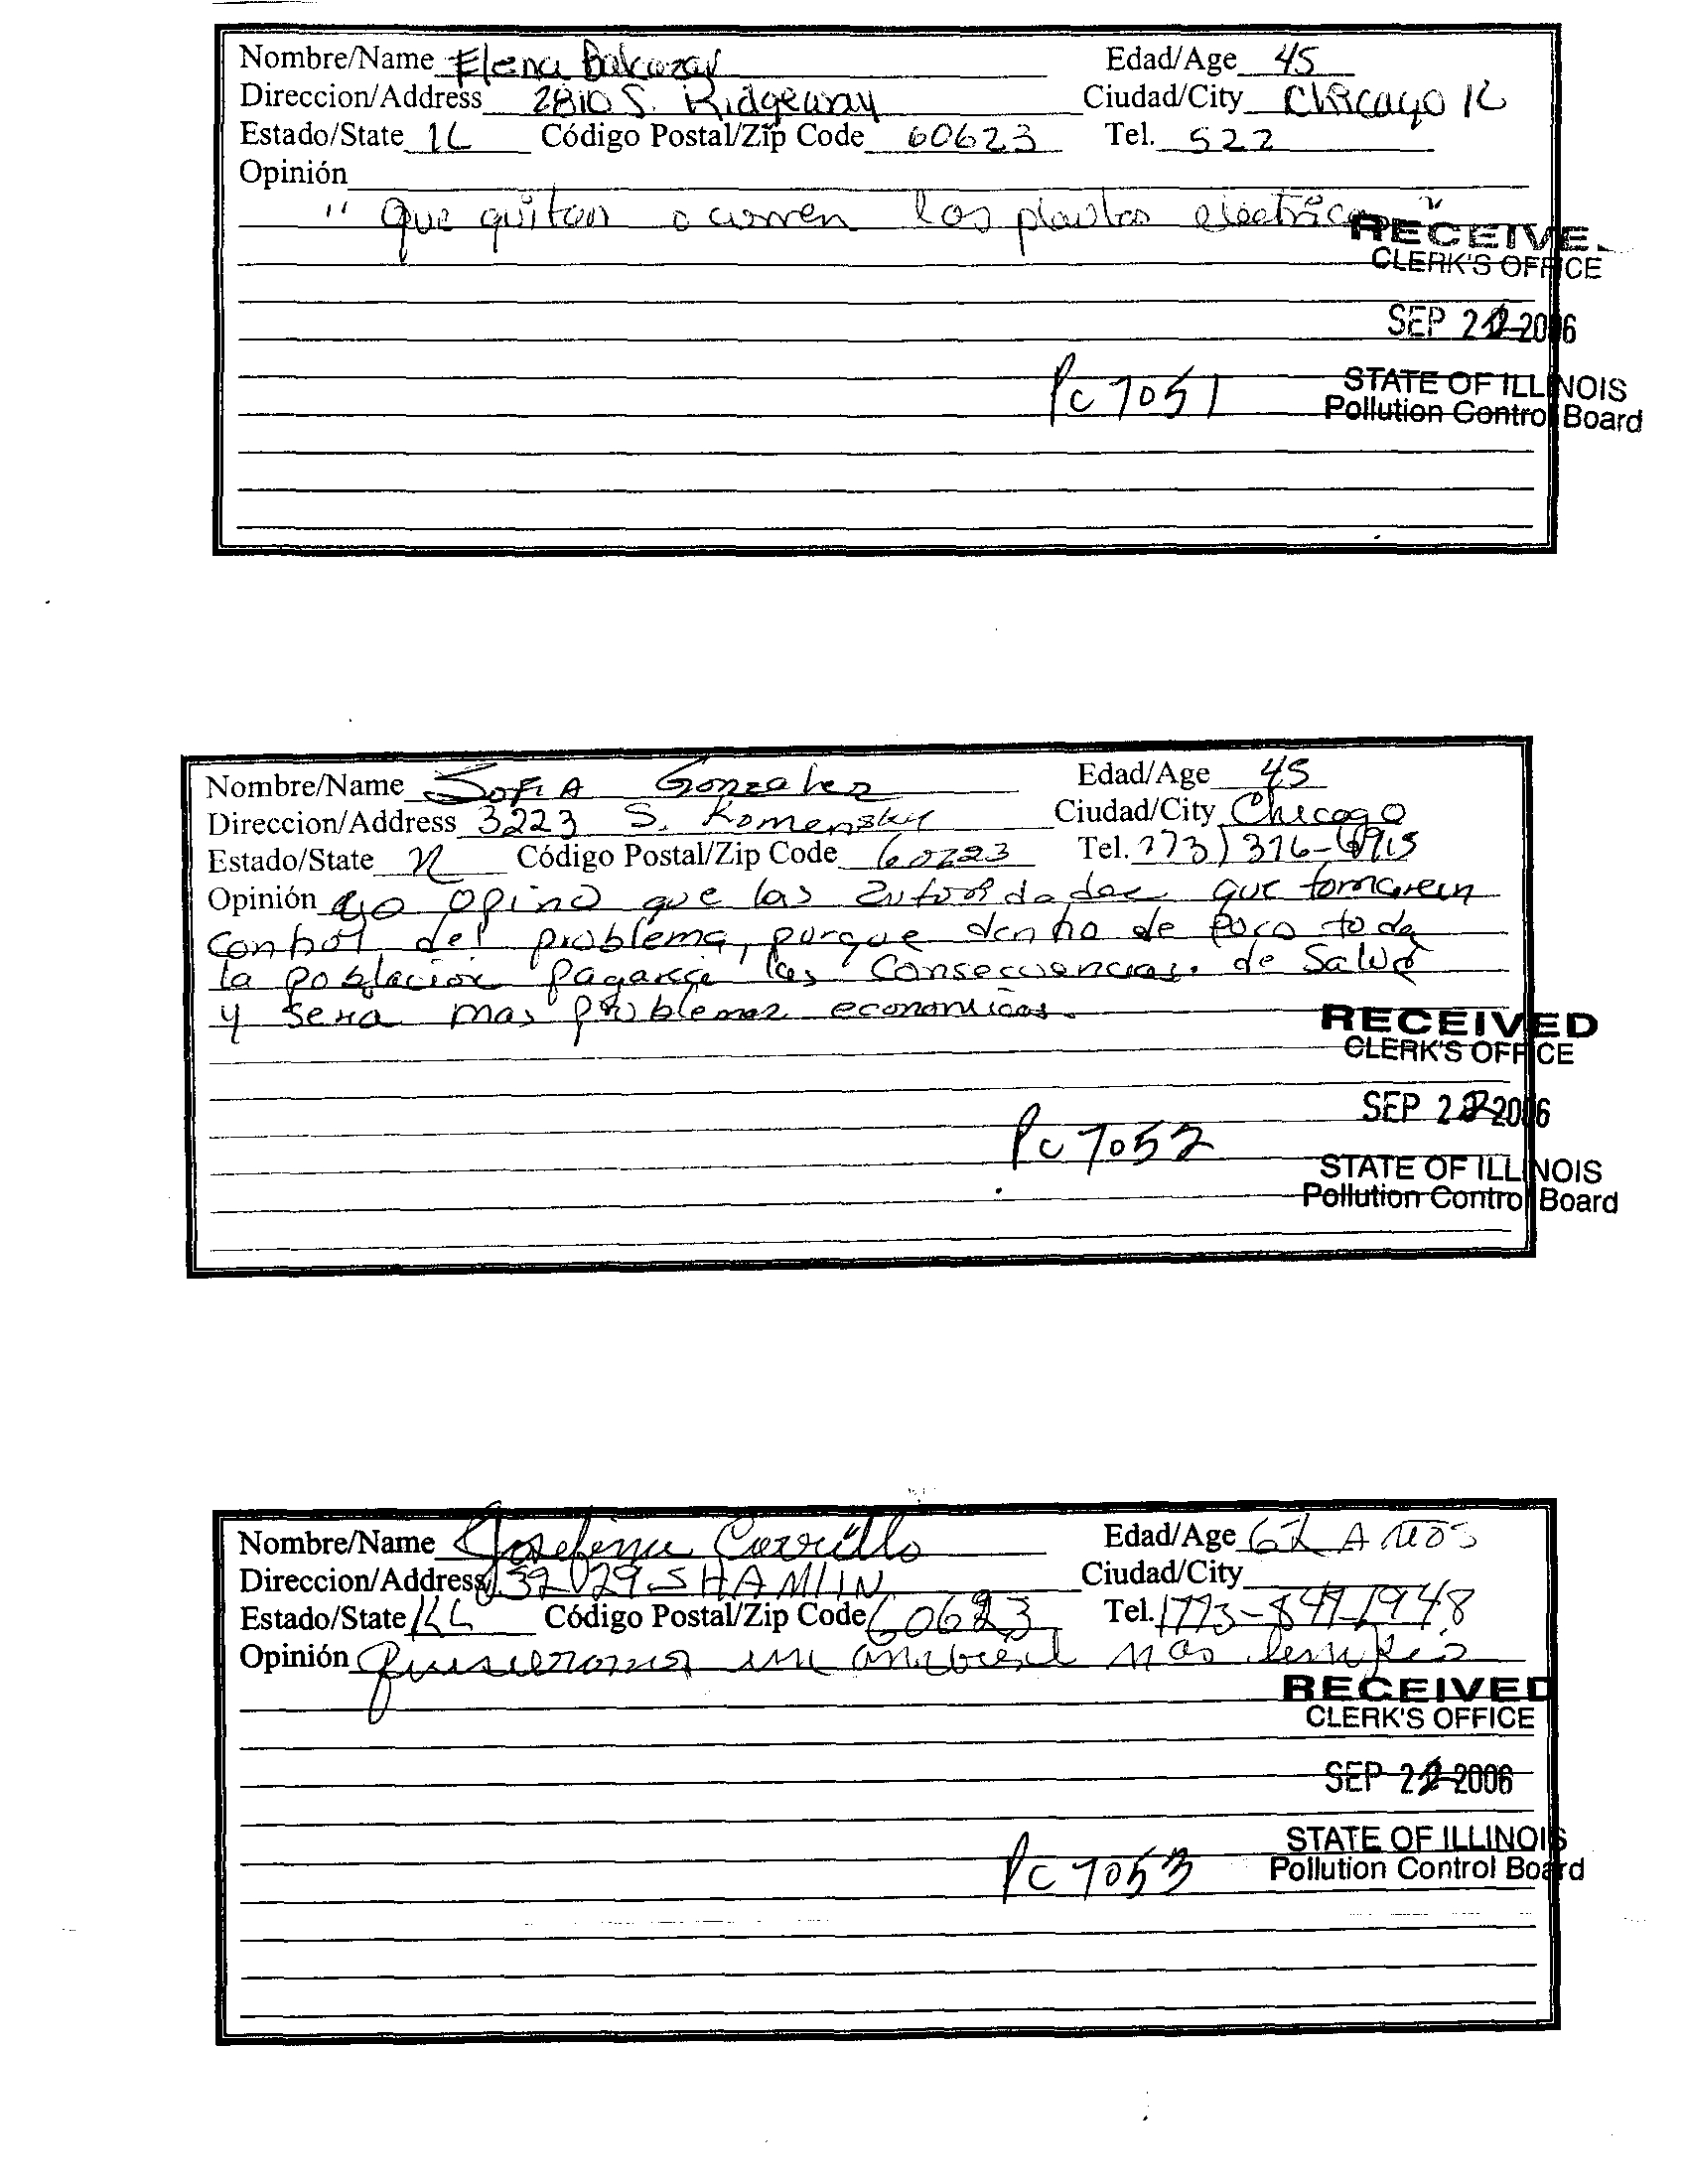 Nombre/Name Elena Balcazar Edad/Age 45
Direccion/Address 2810 S. Ridgeway Ciudad/City Chicago IL
Estado/State IL Código Postal/Zip Code 60623 Tel. 522
Opinión
"Que quitan o cierren las plantas electricas"
RECEIVE
CLERK'S OFFICE
SEP 22 2006
PC 7051
STATE OF ILLINOIS
Pollution Control Board
Nombre/Name Sofia Gonzalez Edad/Age 45
Direccion/Address 3223 S. Komensky Ciudad/City Chicago
Estado/State Código Postal/Zip Code Tel. 773) 316-6915
Opinión yo opino que las autoridades que tomaren
control del problema, porque dentro de poco toda
la poblacion pagara las consecuencias. de Salud
y sera mas problemas economicos.
RECEIVED
CLERK'S OFFICE
SEP 22 2006
PC 7052
STATE OF ILLINOIS
Pollution Control Board
Nombre/Name Josefina Carrillo Edad/Age 62 Años
Direccion/Address 3229 S HAMLIN Ciudad/City
Estado/State Código Postal/Zip Code 60623 Tel. 1773-847-1948
Opinión Quisieramos un ambiente mas limpio
RECEIVED
CLERK'S OFFICE
SEP 22 2006
PC 7053
STATE OF ILLINOIS
Pollution Control Board